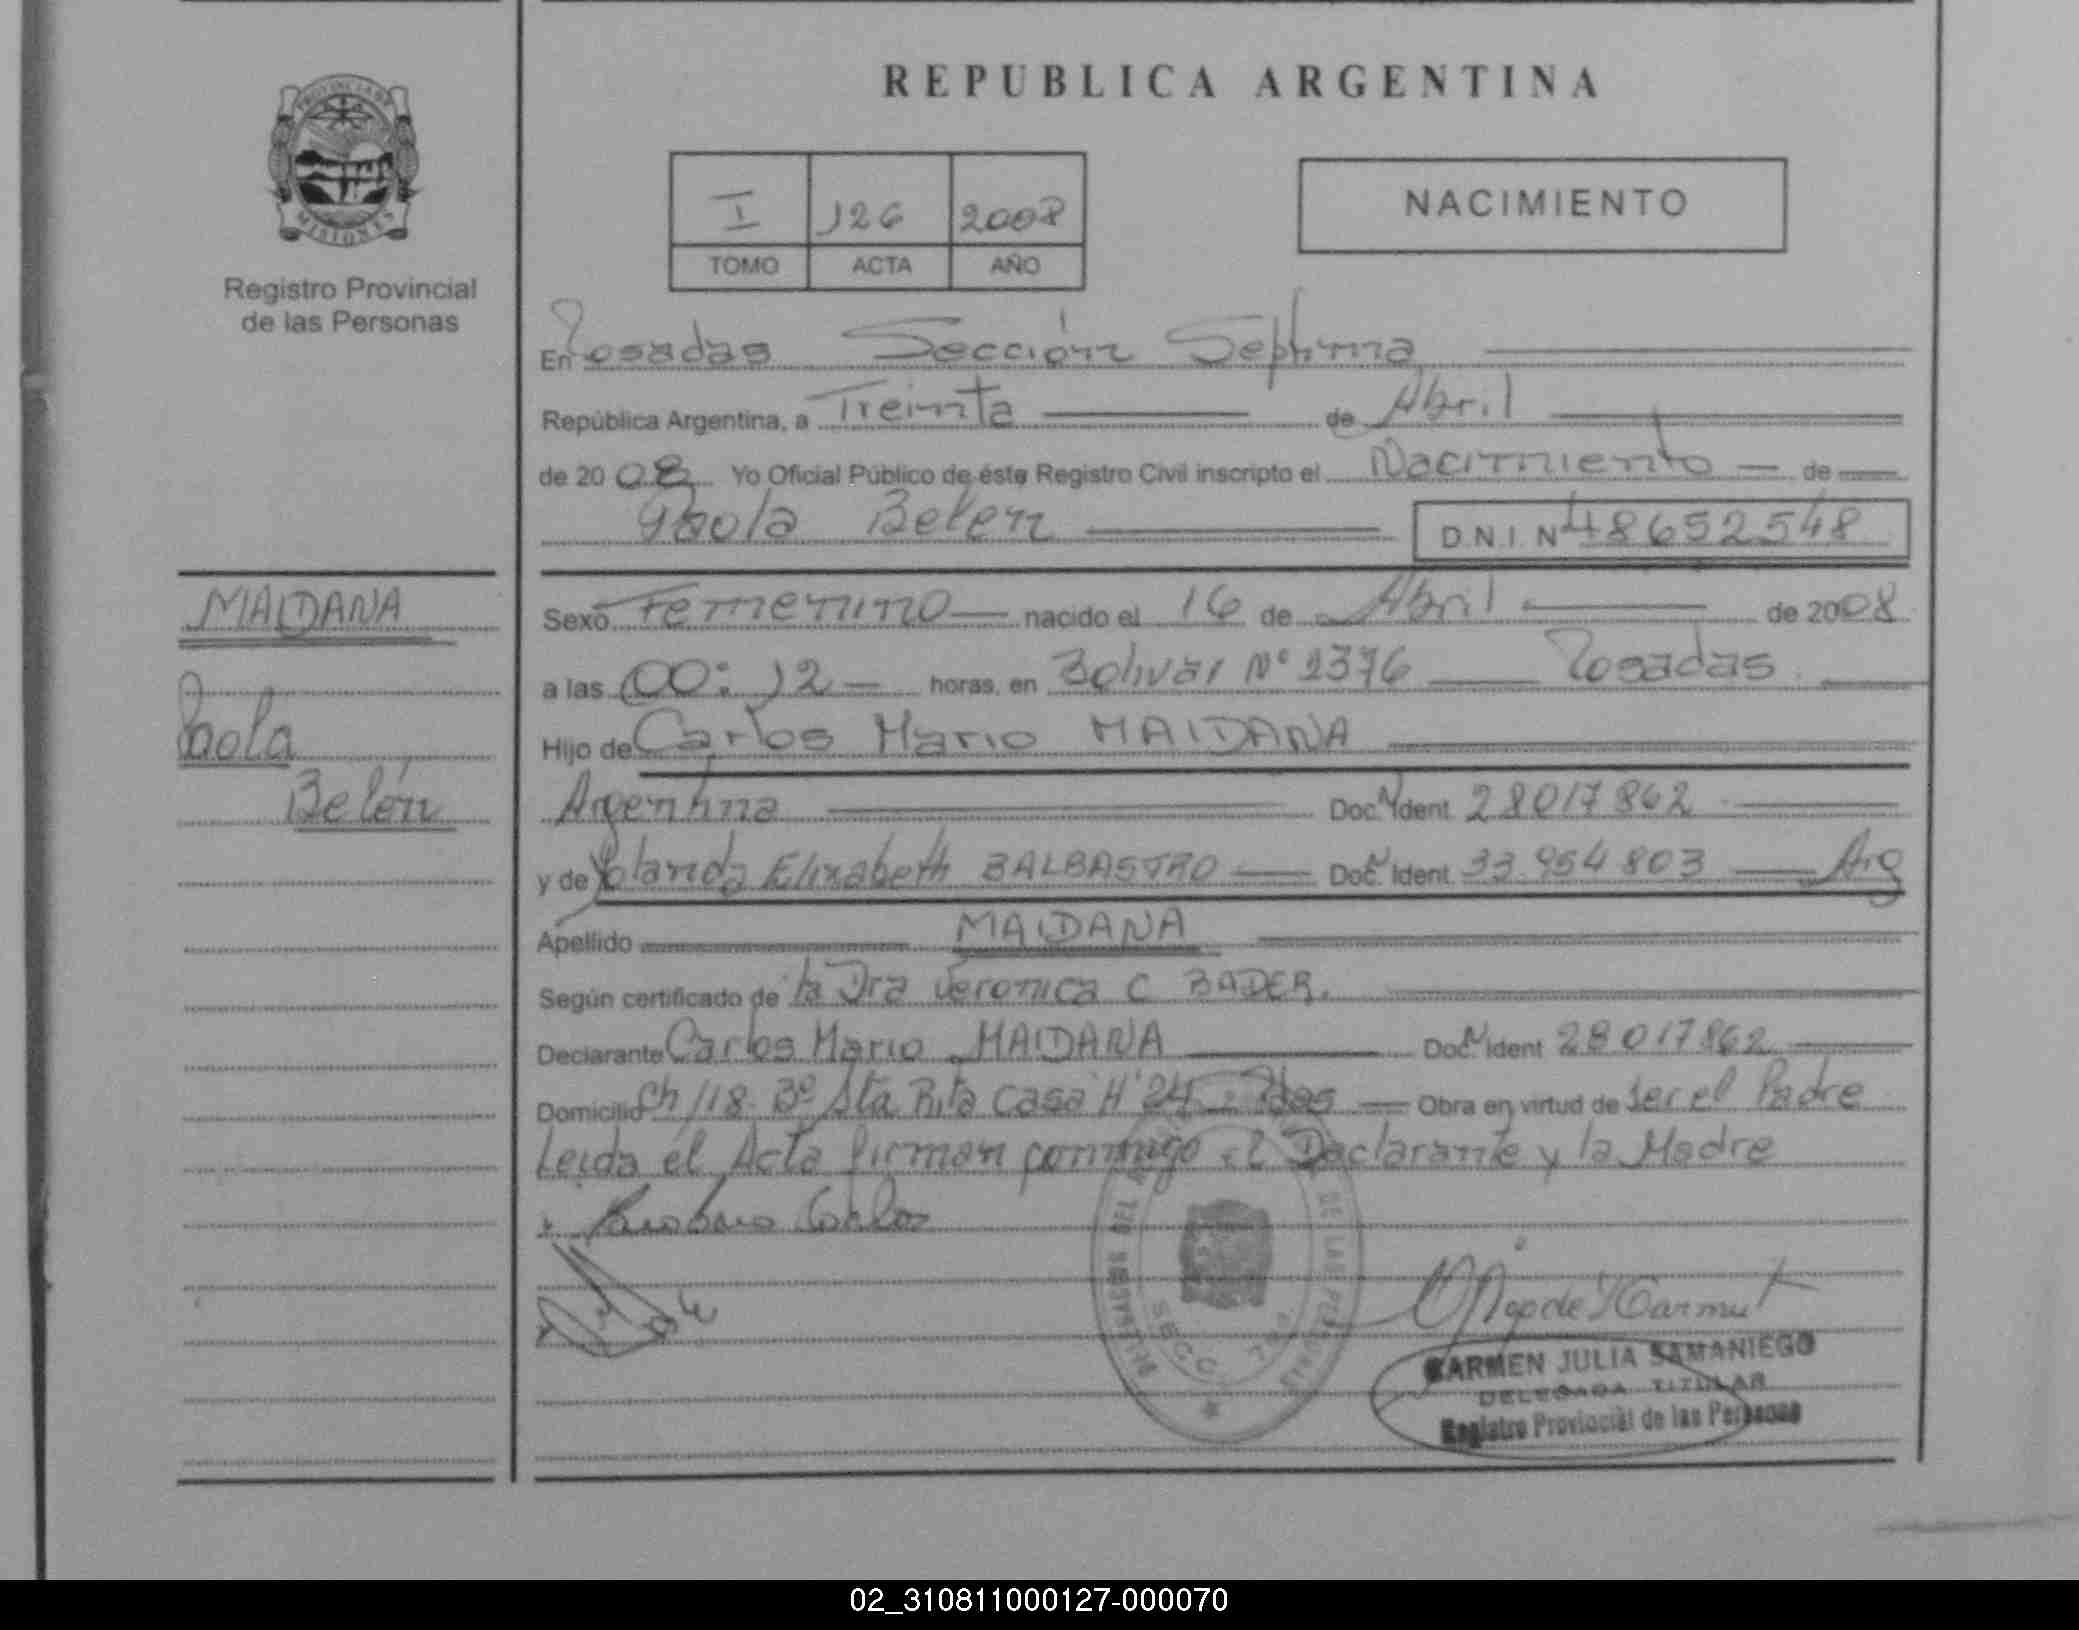 PROVINCIA DE
MISIONES
Registro Provincial
de las Personas
MAIDANA
Paola
Belén
REPUBLICA ARGENTINA
I 126 2008
TOMO ACTA AÑO
NACIMIENTO
En Posadas Sección Septima
República Argentina, a Treinta de Abril
de 2008 Yo Oficial Público de éste Registro Civil inscripto el Nacimiento de
Paola Belen D.N.I. N 48652548
Sexo Femenino nacido el 16 de Abril de 2008
a las 00:12 horas, en Bolivar Nº 2376 Posadas
Hijo de Carlos Mario MAIDANA
Argentina Doc. N Ident. 28017862
y de Yolanda Elizabeth BALBASTRO Doc. N Ident. 33.954 803 Arg
Apellido MAIDANA
Según certificado de la Dra Veronica C BADER.
Declarante Carlos Mario MAIDANA Doc. N Ident 28017862
Domicilio Ch 118 Bº Sta Rita Casa Nº 24 Pdas Obra en virtud de ser el Padre
Leida el Acta firman conmigo el Declarante y la Madre
Carlos
DE LAS PERSONAS
SECC. 7
CARMEN JULIA SAMANIEGO
DELEGADA TITULAR
Registro Provincial de las Personas
02_310811000127-000070